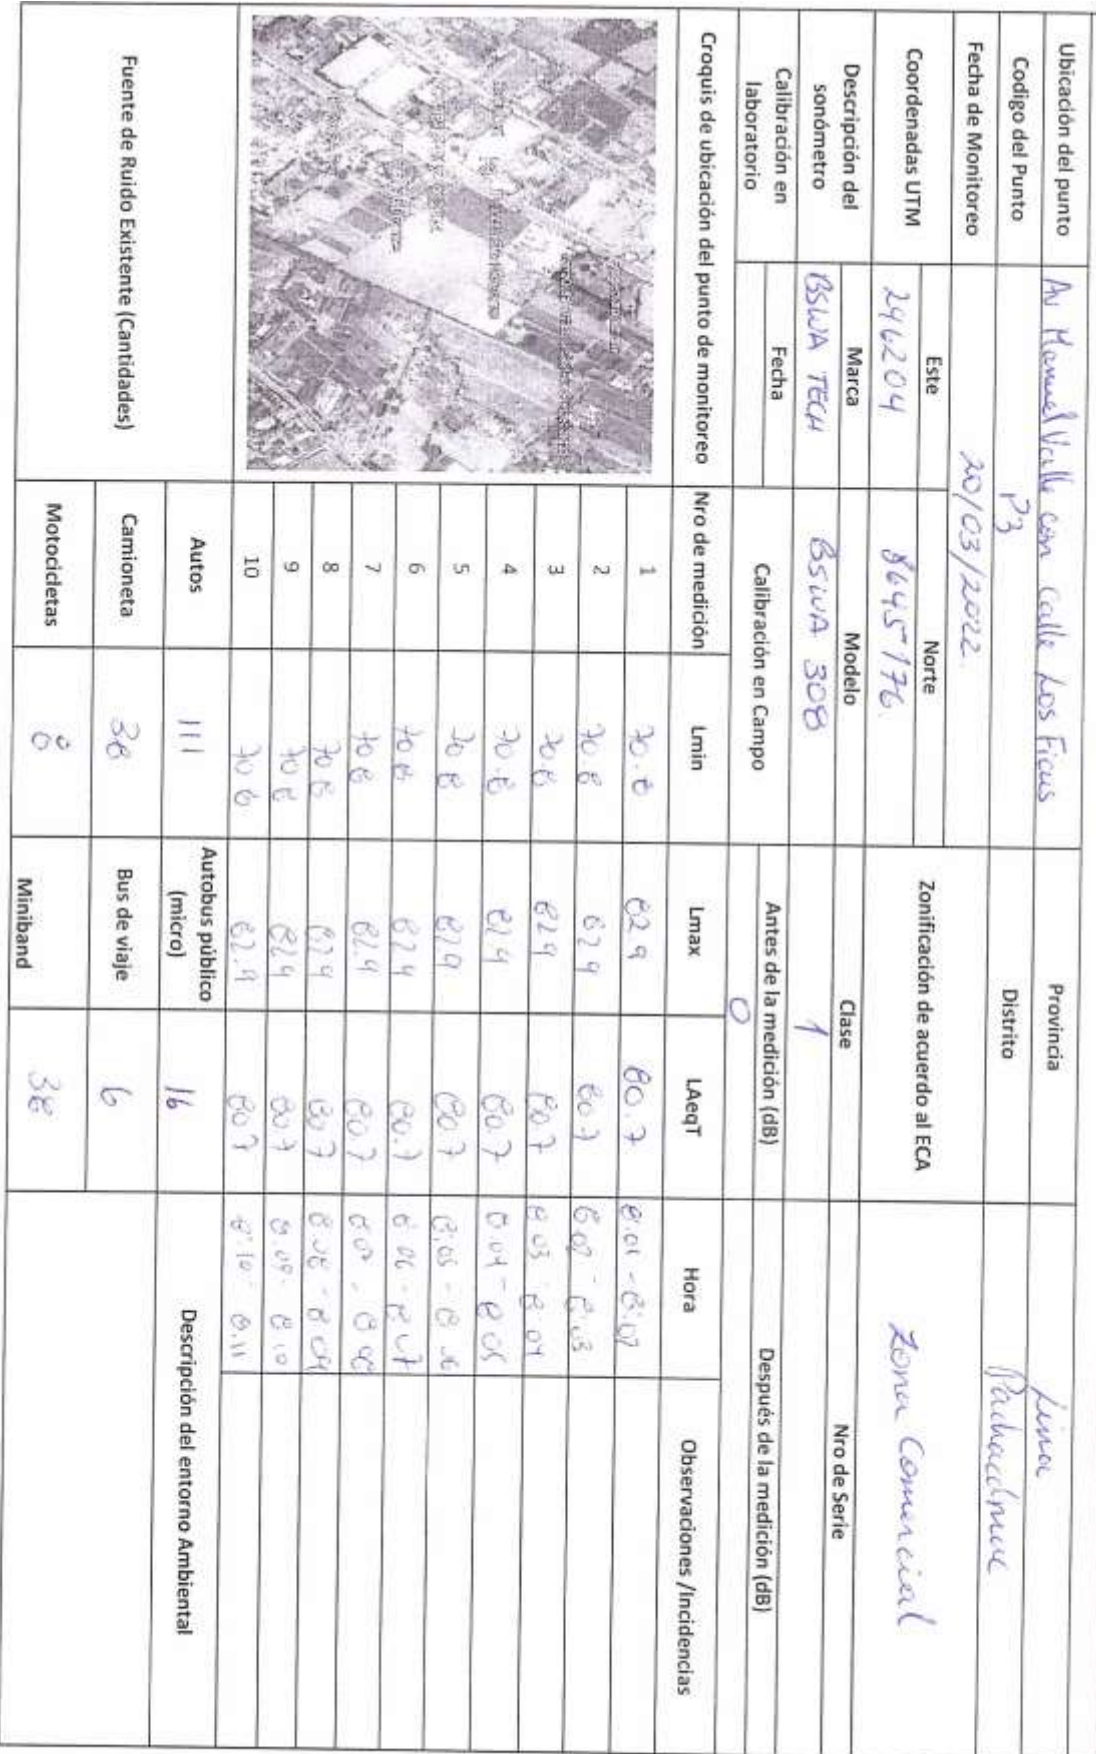 Ubicación del punto Av Manuel Valle con calle Los Ficus Provincia Lima
Codigo del Punto P3 Distrito Pachacamac
Fecha de Monitoreo 20/03/2022.
Coordenadas UTM Este Norte Zonificación de acuerdo al ECA Zona Comercial
296204 8645176.
Descripción del sonómetro Marca Modelo Clase Nro de Serie
BSWA TECH BSWA 308 1
Calibración en laboratorio Fecha Calibración en Campo Antes de la medición (dB) Después de la medición (dB)
0
Croquis de ubicación del punto de monitoreo Nro de medición Lmin Lmax LAeqT Hora Observaciones /Incidencias
1 70.8 82 9 80.7 8:01 - 8:02
2 70 8 829 80 7 8 02 - 8:03
3 70 8 829 80 7 8 03 - 8 04
4 70.8 829 80 7 8 04 - 8 05
5 70 8 829 80 7 8:05 - 8 06
6 70 8 829 80.7 8 06 - 8 07
7 70 8 82.9 80 7 8 07 -
8 70 8 829 80 7 8.08 - 8 09
9 70 8 829 80 7 8.09 - 8 10
10 70 8 82.9 80 7 8:10 - 8.11
Fuente de Ruido Existente (Cantidades) Autos 111 Autobus público (micro) 16 Descripción del entorno Ambiental
Camioneta 38 Bus de viaje 6
Motocicletas 8 Miniband 38